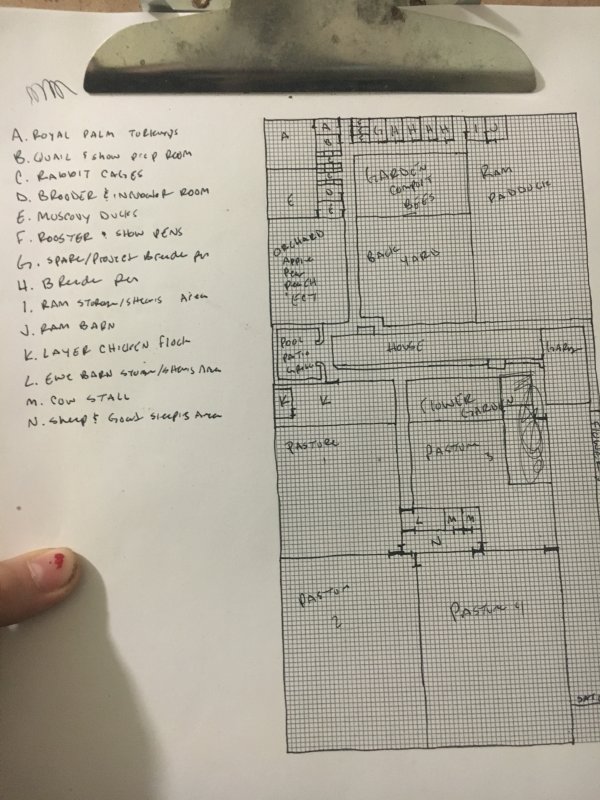 A. ROYAL PALM TURKEYS
B. QUAIL & SHOW PREP ROOM
C. RABBIT CAGES
D. BROODER & INCUBATOR ROOM
E. MUSCOVY DUCKS
F. ROOSTER & SHOW PENS
G. SPARE/PROJECT BREEDER PEN
H. BREEDER PEN
I. RAM STORAGE/SHEARING AREA
J. RAM BARN
K. LAYER CHICKEN FLOCK
L. EWE BARN STORAGE/SHEARING AREA
M. COW STALL
N. SHEEP & GOAT SLEEPING AREA
A
A
G H H H H I J
B
GARDEN
COMPOST
BEES
RAM
PADDOCK
E
D
E
ORCHARD
APPLE
PEAR
PEACH
ECT
BACK
YARD
POOL
PATIO
GRILL
HOUSE
K
K
FLOWER
GARDEN
PASTURE
1
PASTURE
3
L M M
N
PASTURE
2
PASTURE 4